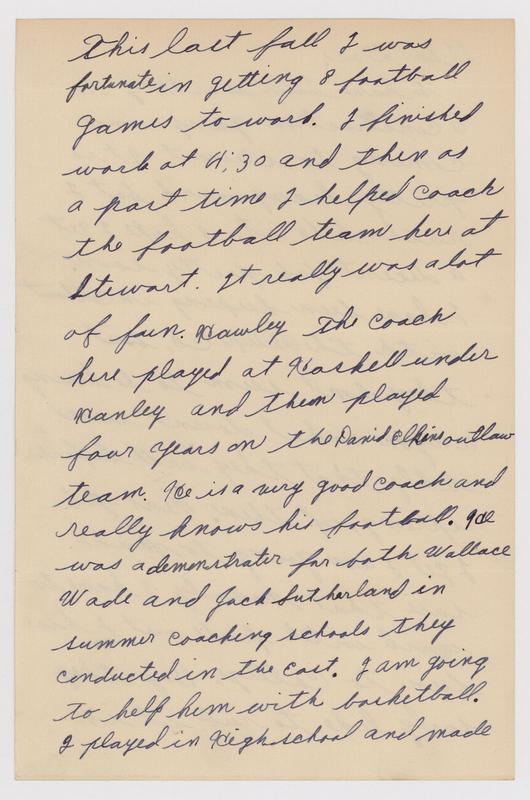 This last fall I was
fortunate in getting 8 football
games to work. I finished
work at 4:30 and then as
a part time I helped coach
the football team here at
Stewart. It really was a lot
of fun. Hawley the coach
here played at Haskell under
Hanley and them played
four years on the David Elkins outlaw
team. He is a very good coach and
really knows his football. He
was a demonstrator for both Wallace
Wade and Jack Sutherland in
summer coaching schools they
conducted in the east. I am going
to help him with basketball.
I played in High school and made